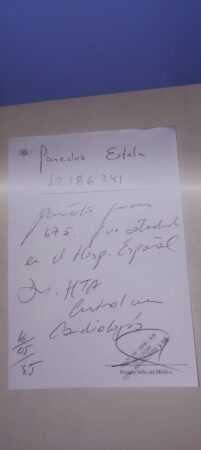 Paredes Estela
12.186.241
675. fue atendida
en el Hosp. Español
Dx. HTA
Control con
Cardiología
16/05/25
Firma y Sello del Médico